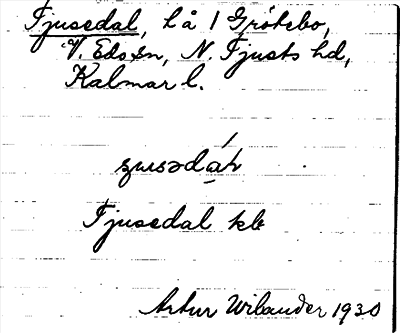 Tjusedal, lå 1 Grötebo,
V. Eds sn, N. Tjusts hd,
Kalmar l.
Tjusedal kb
Artur Wilander 1930